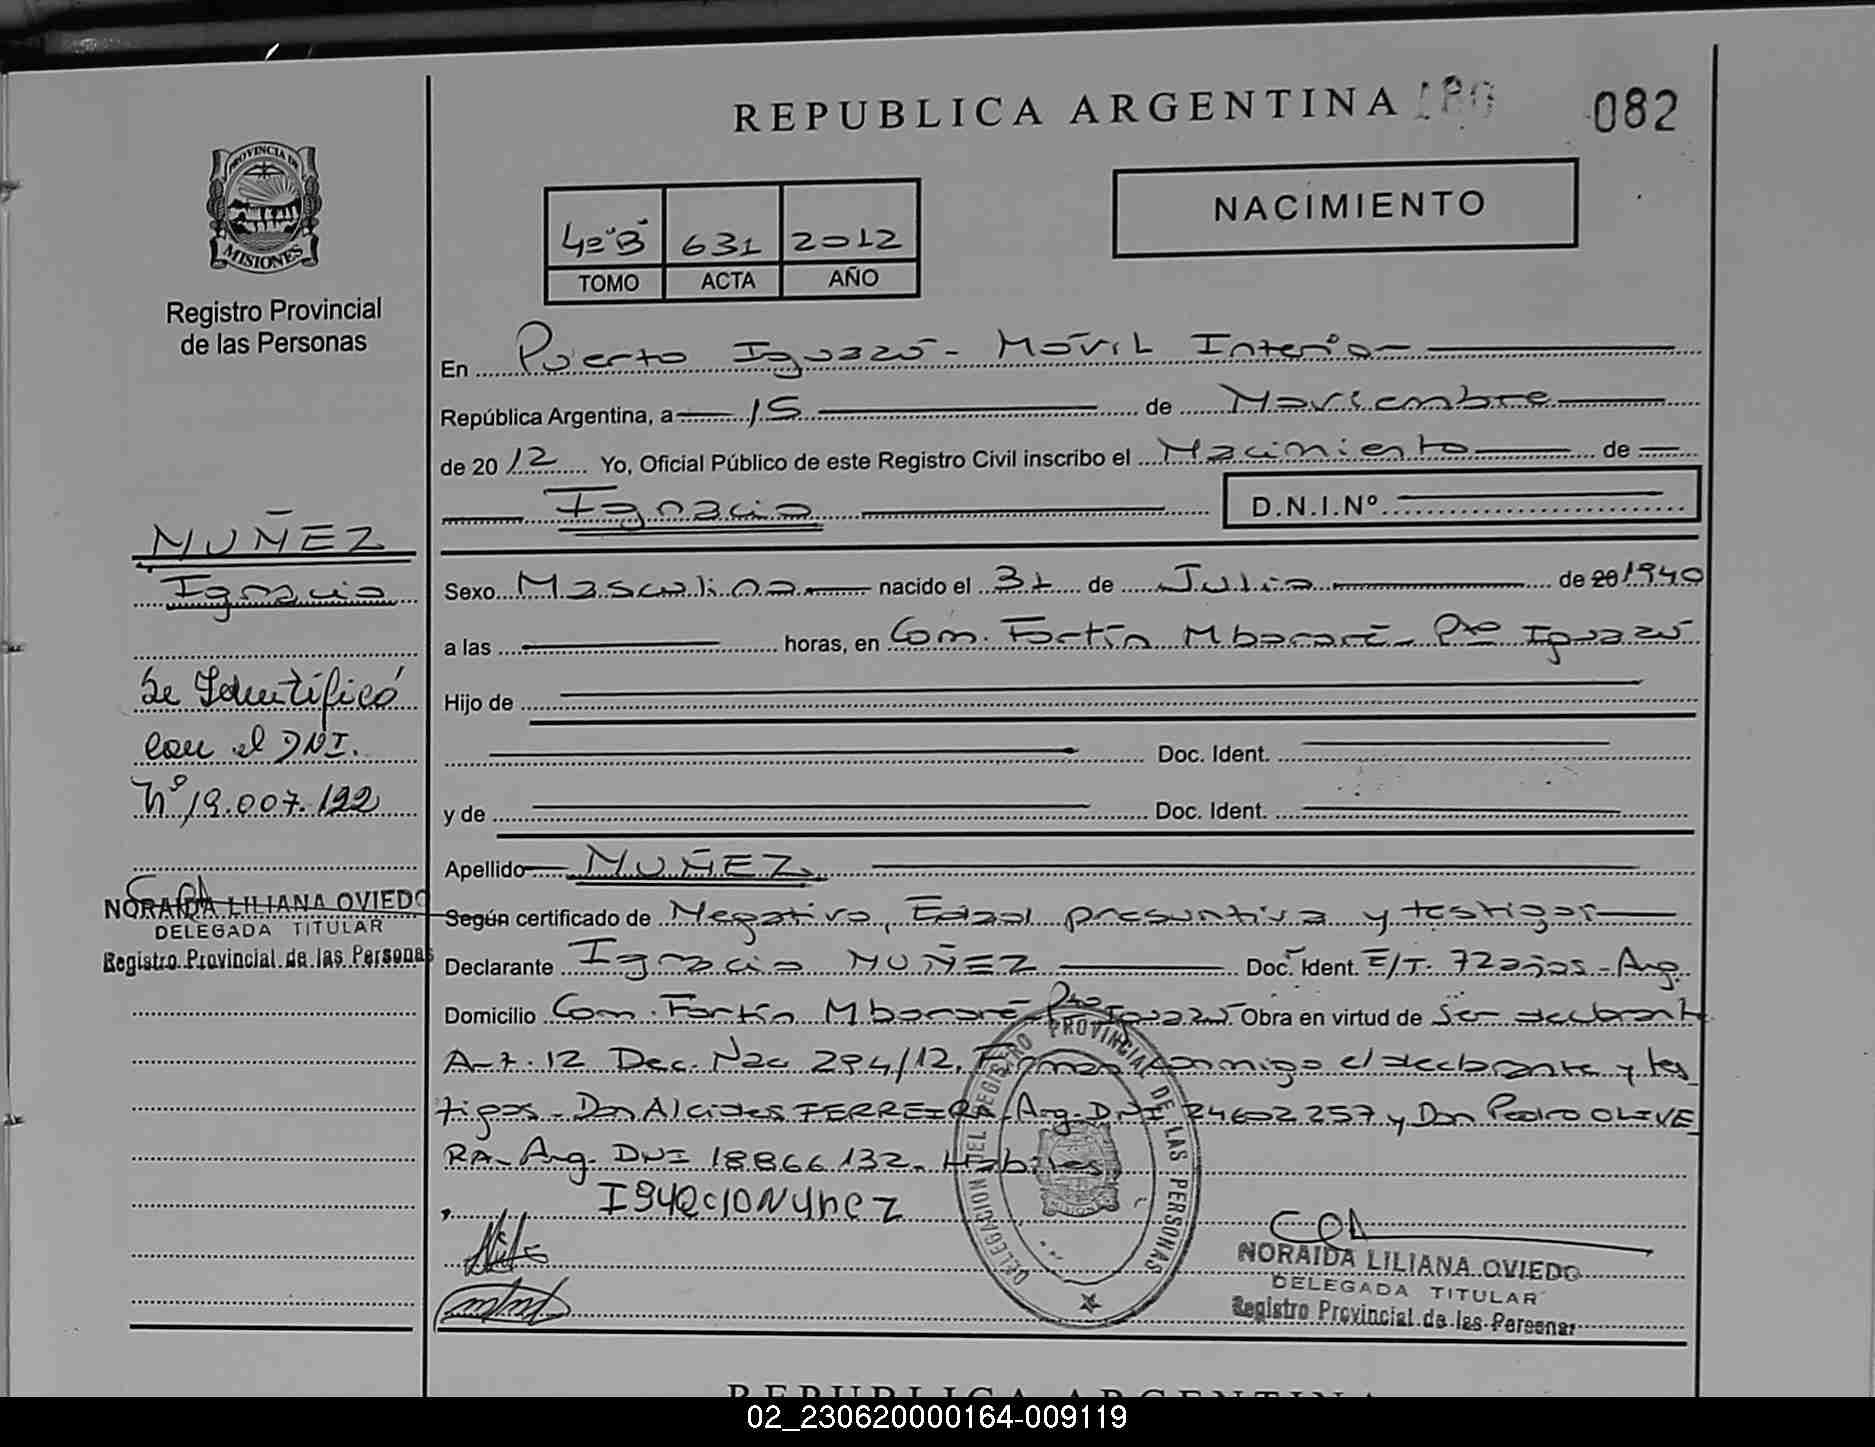 REPUBLICA ARGENTINA 180 082
PROVINCIA DE
MISIONES
Registro Provincial
de las Personas
NACIMIENTO
4º"B" 631 2012
TOMO ACTA AÑO
En Puerto Iguazú - Móvil Interior
República Argentina, a 15 de Noviembre
de 2012 Yo, Oficial Público de este Registro Civil inscribo el Nacimiento de
Ignacio D.N.I.Nº
Sexo Masculino nacido el 31 de Julio de 20 1940
a las horas, en Com. Fortín Mbororé - Pto Iguazú
Hijo de
Doc. Ident.
y de Doc. Ident.
Apellido NUÑEZ
Según certificado de Negativo, Edad presuntiva y testigos
Declarante Ignacio NUÑEZ Doc. Ident. E/T. 72 años - Arg.
Domicilio Com. Fortín Mbororé - Pto Iguazú Obra en virtud de ser declarante
Art. 12 Dec. Nac 294/12. Firman conmigo el declarante y tes
tigos - Don Alcides FERREIRA, Arg. DNI 24602257 y Don Pedro OLIVE
RA - Arg. DNI 18866132. Hábiles
Ignacio Nuñez
NORAIDA LILIANA OVIEDO
DELEGADA TITULAR
Registro Provincial de las Personas
DELEGACION DEL REGISTRO PROVINCIAL DE LAS PERSONAS
MISIONES
NUÑEZ
Ignacio
Se Identificó
con el DNI.
Nº 19.007.122
NORAIDA LILIANA OVIEDO
DELEGADA TITULAR
Registro Provincial de las Personas
REPUBLICA ARGENTINA
02_230620000164-009119